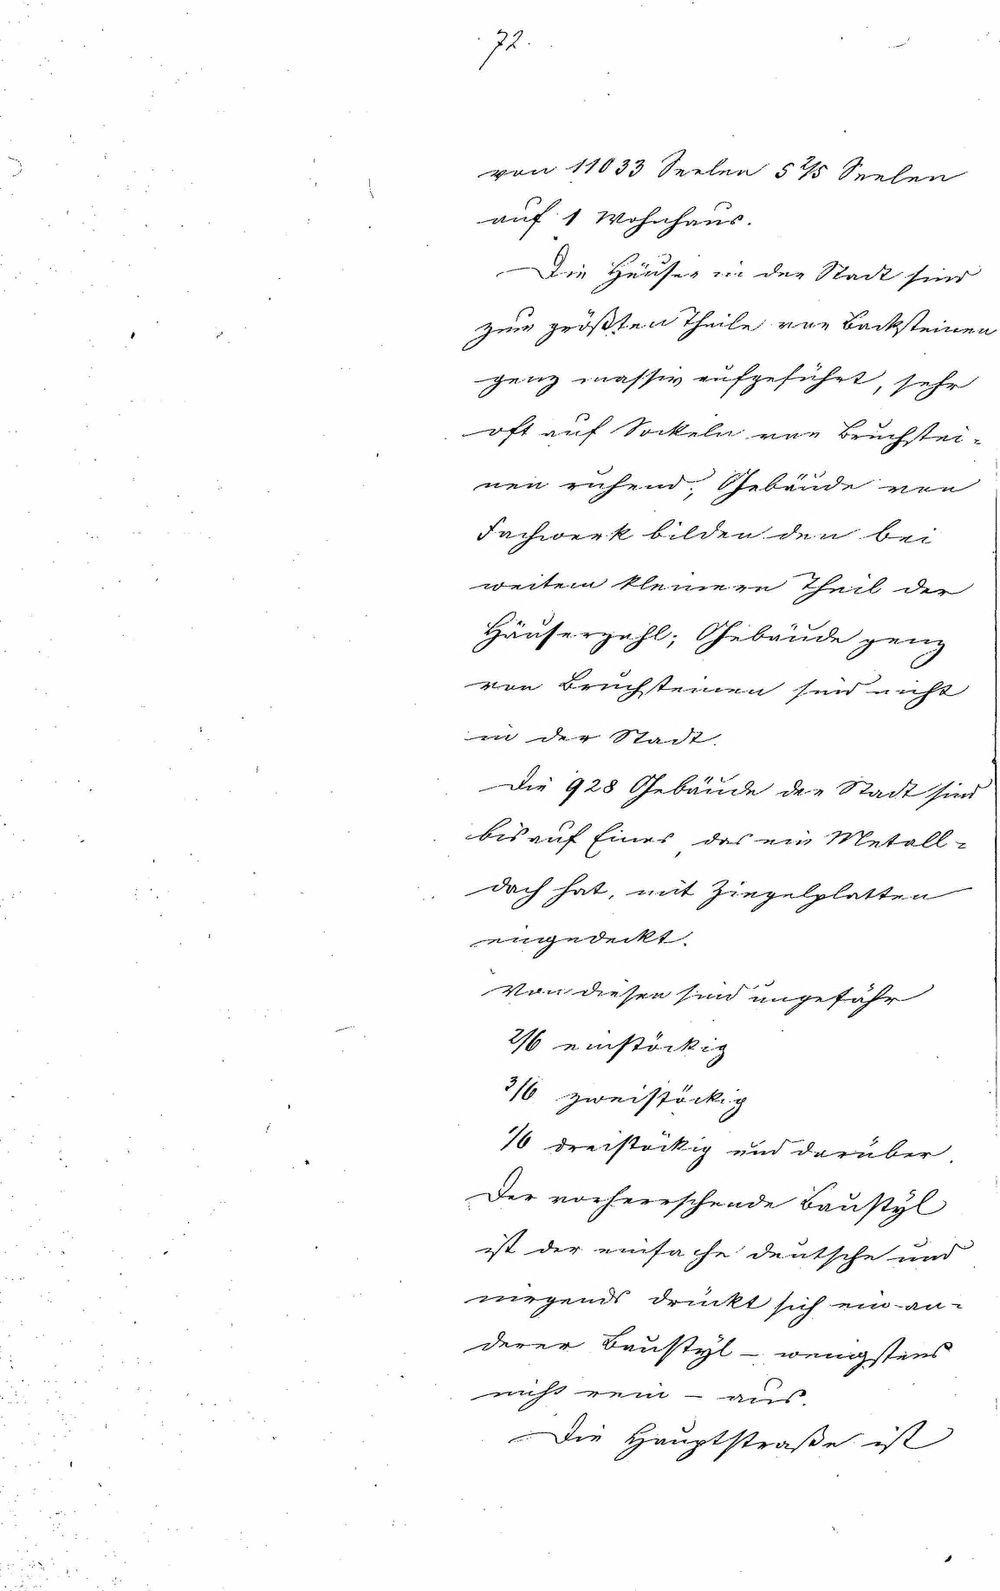 72.
von 11033 Seelen 5 2/5 Seelen
auf 1 Wohnhaus.
Die Häuser in der Stadt sind
zum größten Theile von Backsteinen
ganz massiv aufgeführt, sehr
oft auf Sockeln von Bruchstei-
nen ruhend; Gebäude von
Fachwerk bilden den bei
weitem kleinern Theil der
Häuserzahl; Gebäude ganz
von Bruchsteinen sind nicht
in der Stadt.
Die 928 Gebäude der Stadt sind
bis auf Eines, das ein Metall-
dach hat, mit Ziegelplatten
eingedeckt.
Von diesen sind ungefähr
2/6 einstöckig
3/6 zweistöckig
1/6 dreistöckig und darüber.
Der vorherrschende Baustÿl
ist der einfache deutsche und
nirgends drückt sich ein an-
derer Baustÿl – wenigstens
nicht rein – aus.
Die Hauptstraße ist